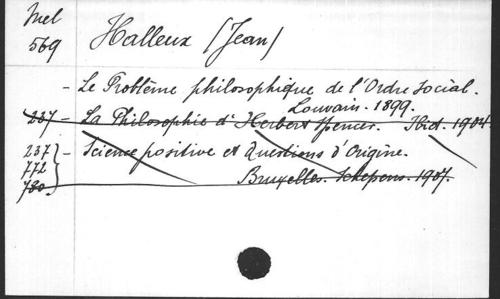 Mel
569
Halleux (Jean)
- Le Problème philosophique de l'Ordre social.
Louvain. 1899.
237 - La Philosophie d' Herbert Spencer. Ibid. 1904
237 - Science positive et Questions d'Origine.
772
780
Bruxelles. Schepens. 1907.